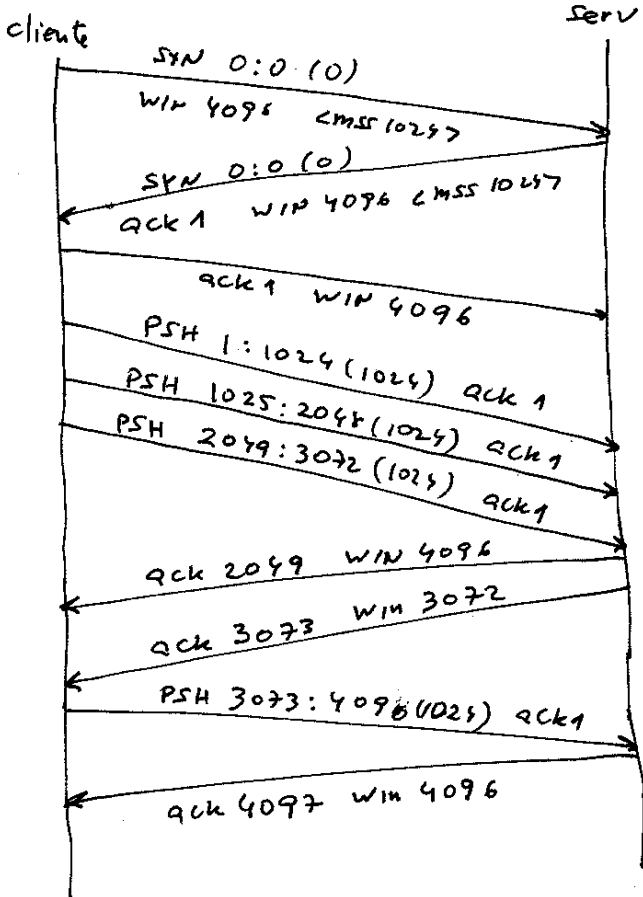 cliente
serv
SYN 0:0 (0)
WIN 4096 <mss 1024>
SYN 0:0 (0)
ack 1 WIN 4096 <mss 1024>
ack 1 WIN 4096
PSH 1:1024 (1024) ack 1
PSH 1025:2048 (1024) ack 1
PSH 2049:3072 (1024) ack 1
ack 2049 WIN 4096
ack 3073 Win 3072
PSH 3073:4096 (1024) ack 1
ack 4097 Win 4096